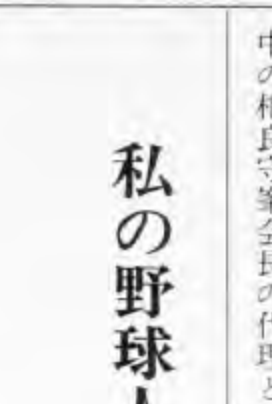 中の相良守峯会長の代理と
私の野球人